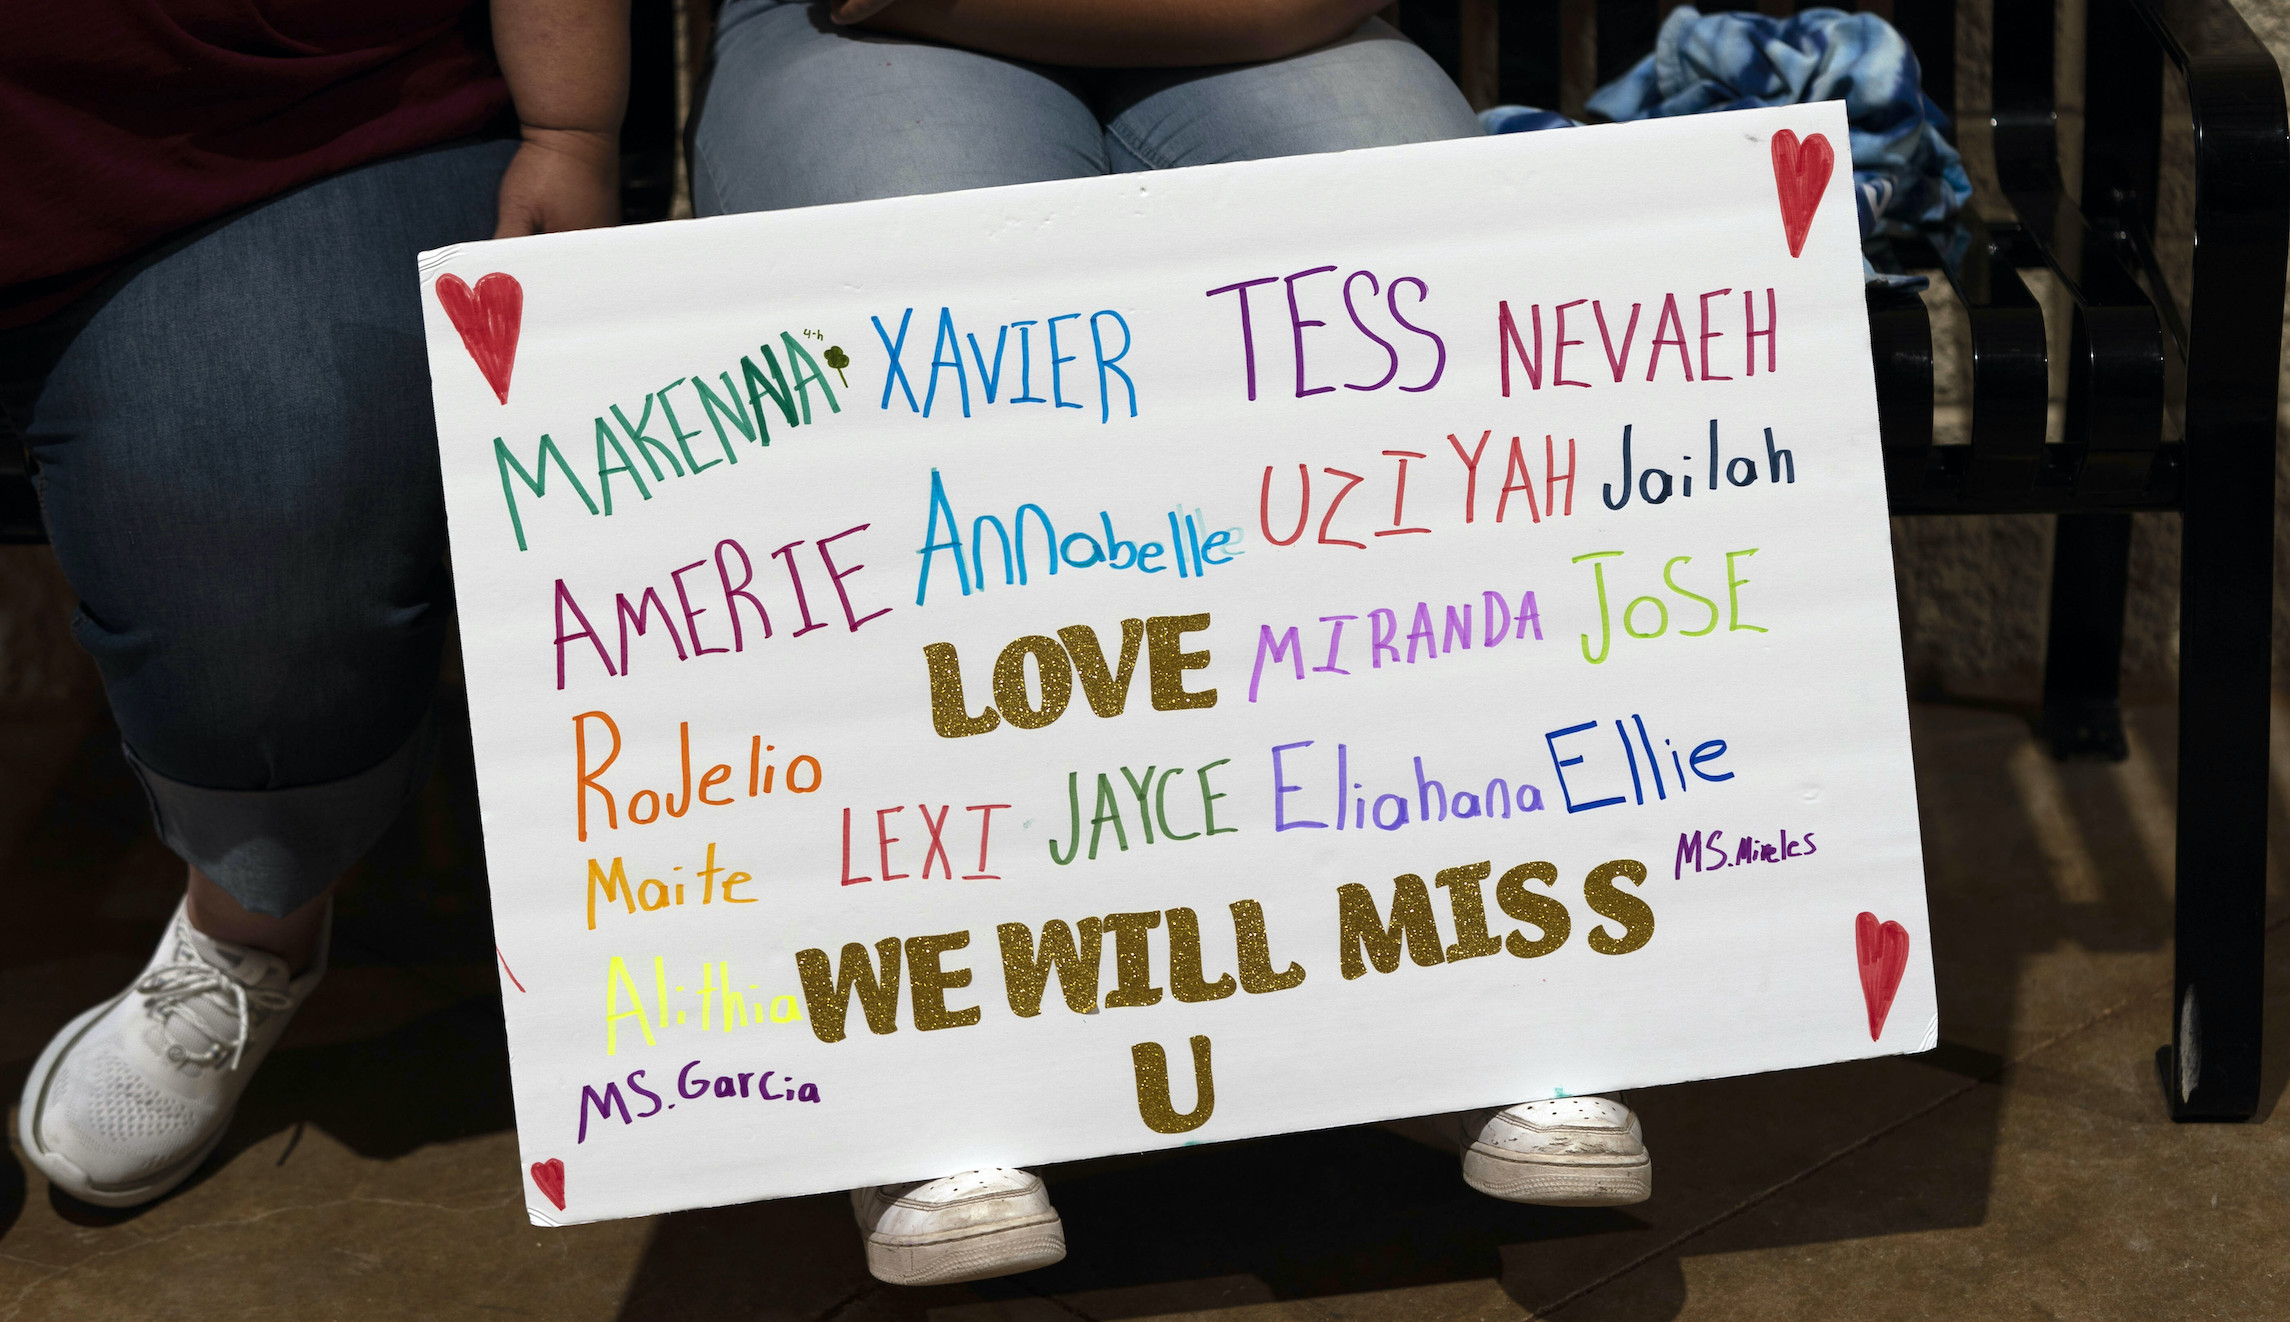 MAKENNA 4-h XAVIER TESS NEVAEH
AMERIE Annabelle UZIYAH Jailah
LOVE MIRANDA JOSE
RoJelio LEXI JAYCE Eliahana Ellie
Maite MS.Mireles
Alithia WE WILL MISS
MS.Garcia U